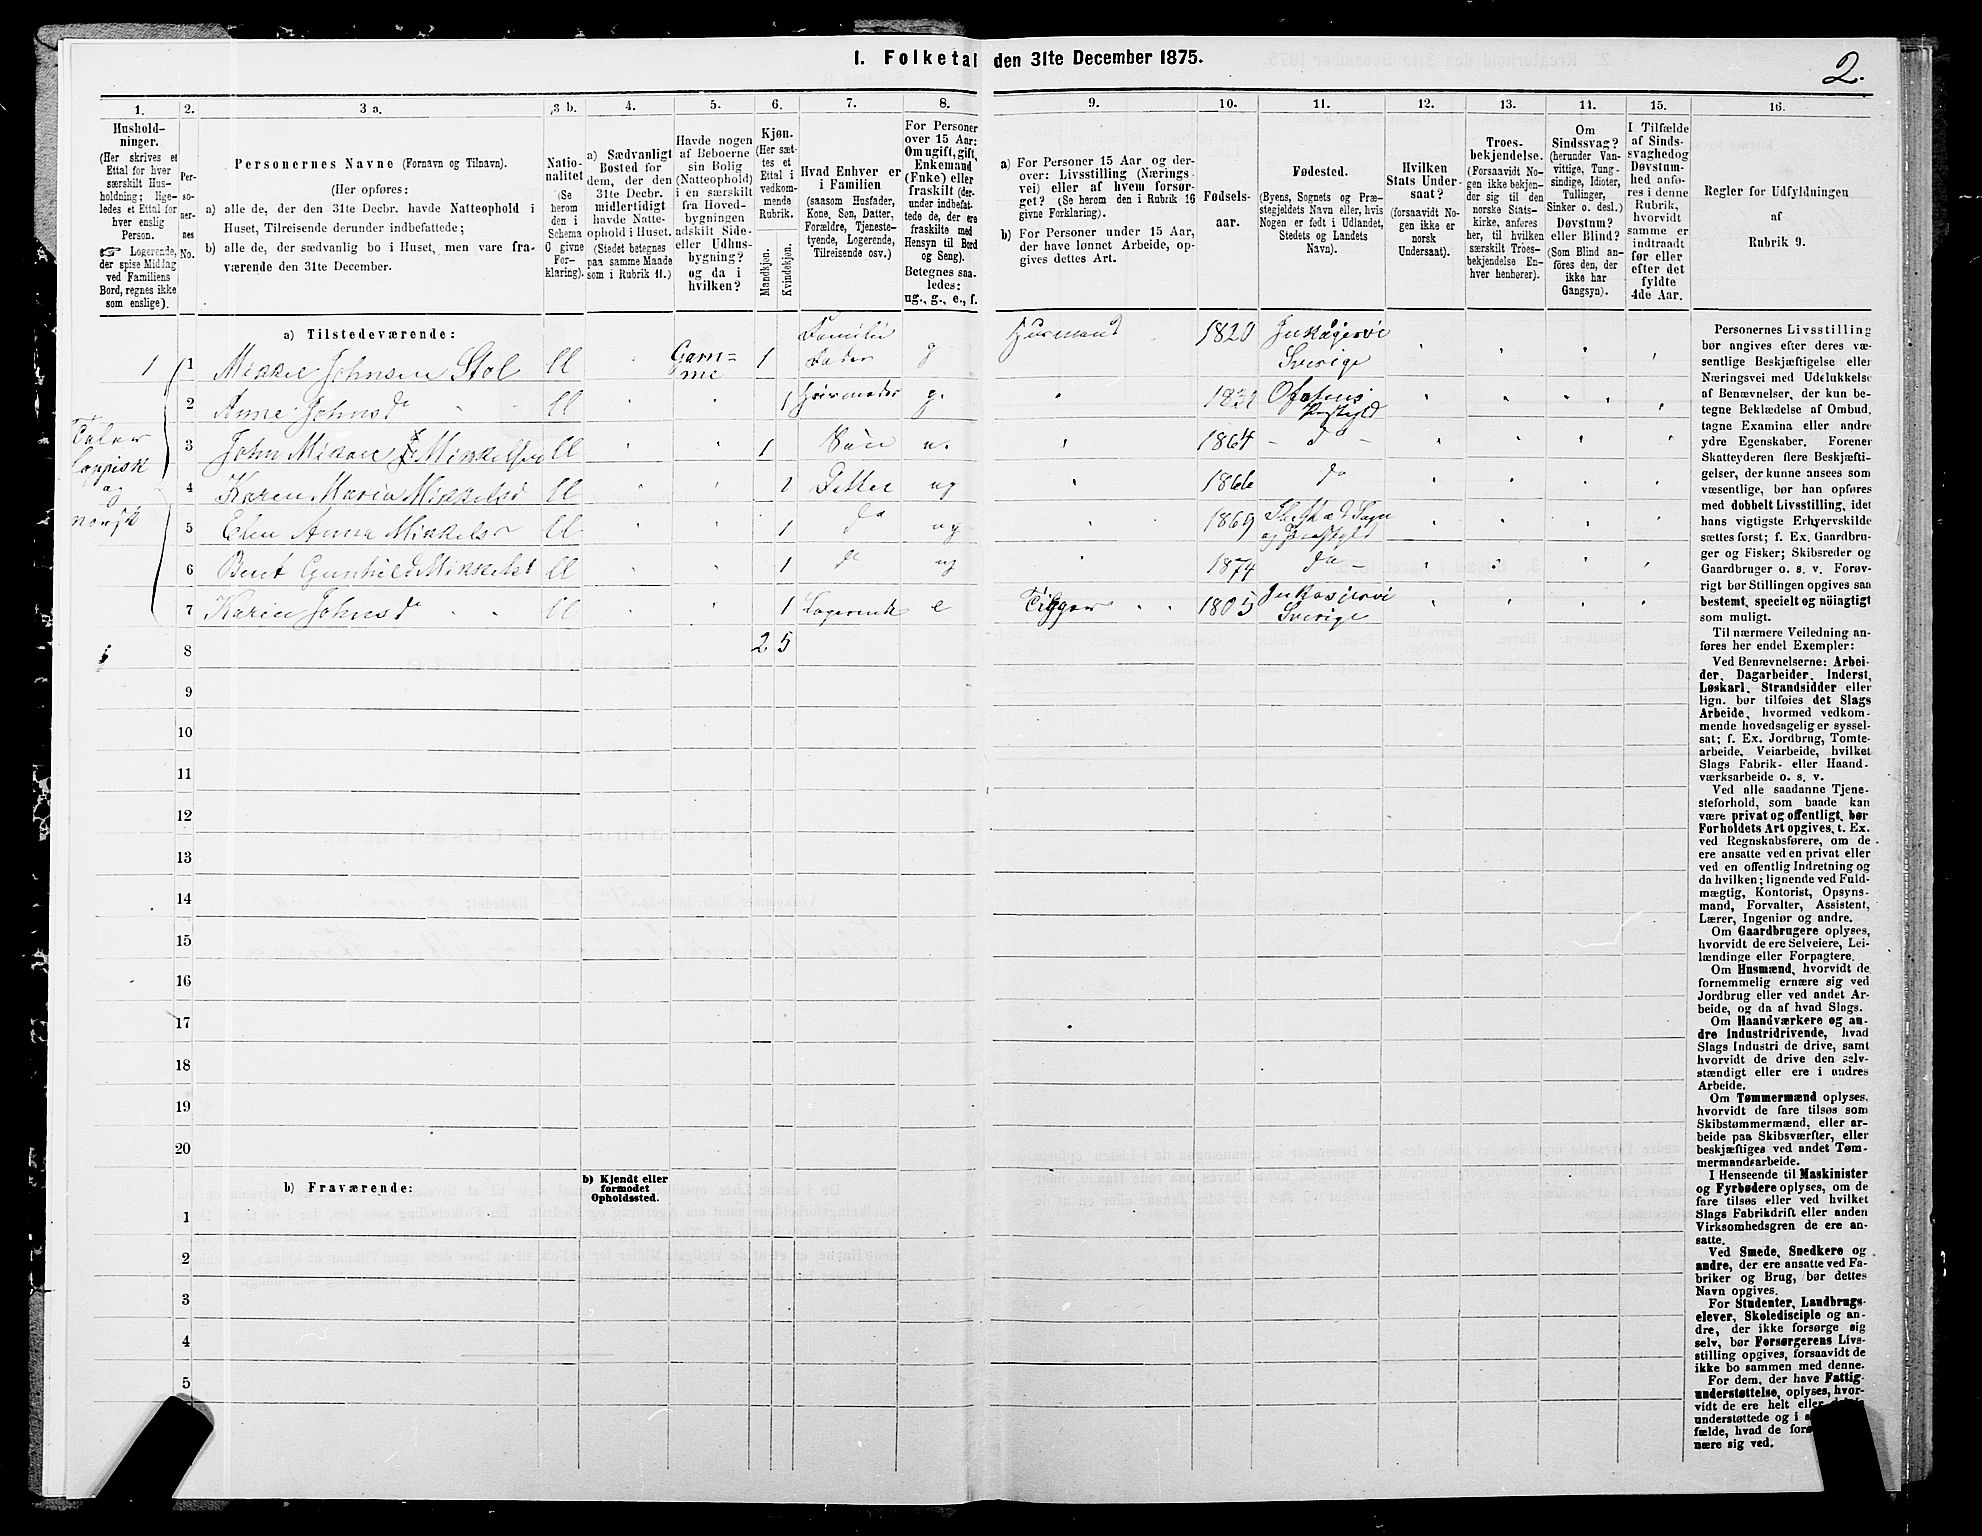 1. Folketal den 31te December 1875.
2.
1.
Hushold-
ninger.
(Her skrives et
Ettal for hver
særskilt Hus-
holdning; lige-
ledes et Ettal for
hver enslig
Person.
Logerende,
der spise Middag
ved Familiens
Bord, regnes ikke
som enslige).
2.
Per-
so-
ner-
nes
No.
3 a.
Personernes Navne (Fornavn og Tilnavn).
(Her opføres:
a) alle de, der den 31te Decbr. havde Natteophold i
Huset, Tilreisende derunder indbefattede;
b) alle de, der sædvanlig bo i Huset, men vare fra-
værende den 31te December.
3 b.
Natio-
nalitet
(Se
herom
den i
Schema
O givne
For-
klaring).
4.
a) Sædvanligt
Bosted for
dem, der den
31te Decbr.
midlertidigt
havde Natte-
ophold i Huset.
(Stedet betegnes
paa samme Maade
som i Rubrik 11.)
5.
Havde nogen
af Beboerne
sin Bolig
(Natteophold)
i en særskilt
fra Hoved-
bygningen
adskilt Side-
eller Udhus-
bygning?
og da i
hvilken?
6.
Kjøn.
(Her sæt-
tes et
Ettal i
vedkom-
mende
Rubrik.
Mandkjøn.
Kvindekjøn.
7.
Hvad Enhver er
i Familien
(saasom Husfader,
Kone, Søn, Datter,
Forældre, Tjeneste-
tyende, Logerende,
Tilreisende osv.)
8.
For Personer
over 15 Aar:
Om ugift, gift,
Enkemand
(Enke) eller
fraskilt (der-
under indbefat-
tede de, der ere
fraskilte med
Hensyn til Bord
og Seng).
Betegnes saa-
ledes:
ug., g., e., f.
9.
a) For Personer 15 Aar og der-
over: Livsstilling (Nærings-
vei) eller af hvem forsør-
get? (Se herom den i Rubrik 16
givne Forklaring).
b) For Personer under 15 Aar,
der have lønnet Arbeide, op-
gives dettes Art.
10.
Fødsels-
aar.
11.
Fødested.
(Byens, Sognets og Præ-
stegjeldets Navn eller, hvis
Nogen er født i Udlandet,
Stedets og Landets
Navn).
12.
Hvilken
Stats Under-
saat?
(forsaavidt No-
gen ikke er
norsk
Undersaat).
13.
Troes-
bekjendelse.
(Forsaavidt No-
gen ikke bekjen-
der sig til den
norske Stats-
kirke, anføres
her, til hvilken
særskilt Troes-
bekjendelse En-
hver henhører).
11.
Om
Sindssvag?
(herunder Van-
vittige, Tung-
sindige, Idioter,
Tullinger,
Sinker o. desl.)
Døvstum?
eller Blind?
(Som Blind an-
føres den, der
ikke har
Gangsyn).
15.
I Tilfælde
af Sinds-
svaghed og
Døvstum-
hed anfø-
res i denne
Rubrik,
hvorvidt
samme er
indtraadt
før eller
efter det
fyldte
4de Aar.
16.
Regler for Udfyldningen
af
Rubrik 9.
a) Tilstedeværende:
1 1 Mikkel Johnsen Stol ll Gam=me 1 Familiefader g Husmand 1820 Jukasjervi Sverige
2 Anne Johnsd ll 1 Husmoder g. 1832 Ofotens Prstgld
3 John Mikkel Mikkelsen ll 1 Søn u. 1864 do
4 Karen Maria Mikkelsd ll 1 Datter ug 1866 do
5 Elen Anna Mikkelsd ll 1 do ug 1869
6 Berit Gunhild Mikkelsd ll 1 do ug 1874 do
7 Karen Johnsd ll 1 Logerende e Tigger 1805 Jukasjervi Sverige
Taler
lappisk
og
norsk
8 2 5
9
10
11
12
13
14
15
16
17
18
19
20
b) Fraværende:
b) Kjendt eller
formodet
Opholdssted.
1
2
3
4
5
Personernes Livsstilling
bør angives efter deres væ-
sentlige Beskjæftigelse eller
Næringsvei med Udelukkelse
af Benævnelser, der kun be-
tegne Beklædelse af Ombud,
tagne Examina eller andre
ydre Egenskaber. Forener
Skatteyderen flere Beskjæfti-
gelser, der kunne ansees som
væsentlige, bør han opføres
med dobbelt Livsstilling, idet
hans vigtigste Erhvervskilde
sættes først; f. Ex. Gaardbru-
ger og Fisker; Skibsreder og
Gaardbruger o. s. v. Forøv-
rigt bør Stillingen opgives saa
bestemt, specielt og nöiagtigt
som muligt.
Til nærmere Veiledning an-
føres her endel Exempler:
Ved Benævnelserne: Arbei-
der, Dagarbeider, Inderst,
Løskarl, Strandsidder eller
lign. bør tilføies det Slags
Arbeide, hvormed vedkom-
mende hovedsagelig er syssel-
sat; f. Ex. Jordbrug, Tomte-
arbeide, Veiarbeide, hvilket
Slags Fabrik- eller Haand-
værksarbeide o. s. v.
Ved alle saadanne Tjene-
steforhold, som baade kan
være privat og offentligt, bør
Forholdets Art opgives, t. Ex.
ved Regnskabsførere, om de
ere ansatte ved en privat eller
ved en offentlig Indretning og
da hvilken; lignende ved Fuld-
mægtig, Kontorist, Opsyns-
mand, Forvalter, Assistent,
Lærer, Ingeniør og andre.
Om Gaardbrugere oplyses,
hvorvidt de ere Selveiere, Lei-
lændinge eller Forpagtere.
Om Husmænd, hvorvidt de
fornemmelig ernære sig ved
Jordbrug eller ved andet Ar-
beide, og da af hvad Slags.
Om Haandværkere og an-
dre Industridrivende, hvad
Slags Industri de drive, samt
hvorvidt de drive den selv-
stændigt eller ere i andres
Arbeide.
Om Tømmermænd oplyses,
hvorvidt de fare tilsøs som
Skibstømmermænd, eller ar-
beide paa Skibsværfter, eller
beskjæftiges ved andet Tøm-
mermandsarbeide.
I Henseende til Maskinister
og Fyrbødere oplyses, om de
fare tilsøs eller ved hvilket
Slags Fabrikdrift eller anden
Virksomhedsgren de ere an-
satte.
Ved Smede, Snedkere og
andre, der ere ansatte ved Fa-
briker og Brug, bør dettes
Navn opgives.
For Studenter, Landbrugs-
elever, Skoledisciple og an-
dre, der ikke forsørge sig
selv, bør Forsørgerens Livs-
stilling opgives, forsaavidt de
ikke bo sammen med denne.
For dem, der have Fattig-
understøttelse, oplyses, hvor-
vidt de ere helt eller
understøttede og i
fælde, hvad de
nære sig ved.